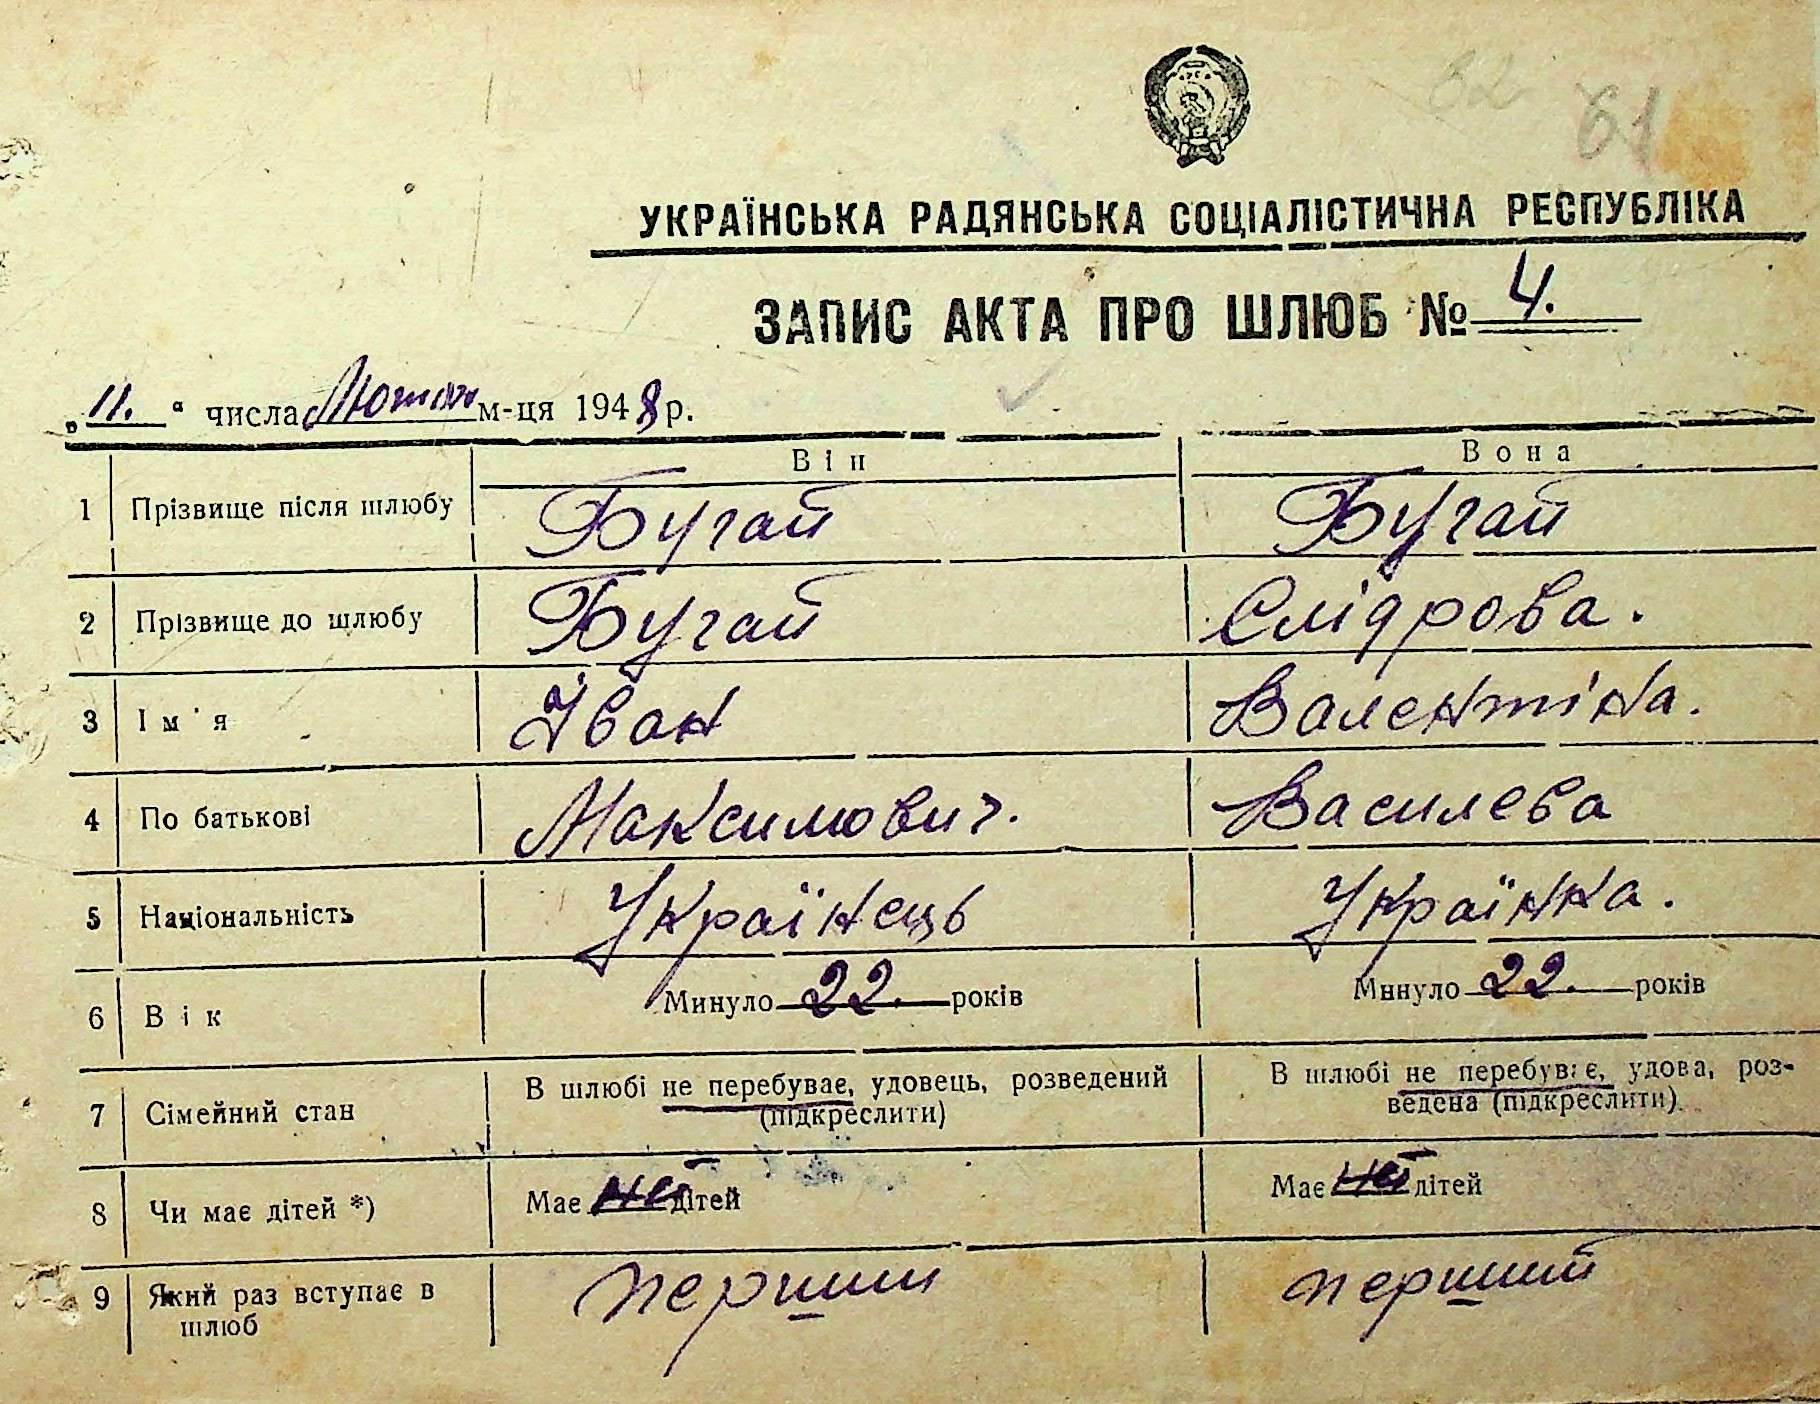 61
УКРАЇНСЬКА РАДЯНСЬКА СОЦІАЛІСТИЧНА РЕСПУБЛІКА
ЗАПИС АКТА ПРО ШЛЮБ № 4.
„11.“ числа м-ця 1948 р.
Він Вона
1 Прізвище після шлюбу Бугай Бугай
2 Прізвище до шлюбу Бугай Слідрова.
3 Ім'я Іван Валентіна.
4 По батькові Максимович. Василева
5 Національність Українець Українка.
6 Вік Минуло 22. років Минуло 22. років
7 Сімейний стан В шлюбі не перебуває, удовець, розведений В шлюбі не перебуває, удова, роз-
(підкреслити) ведена (підкреслити)
8 Чи має дітей *) Має нет дітей Має нет дітей
9 Який раз вступає в перший перший
шлюб